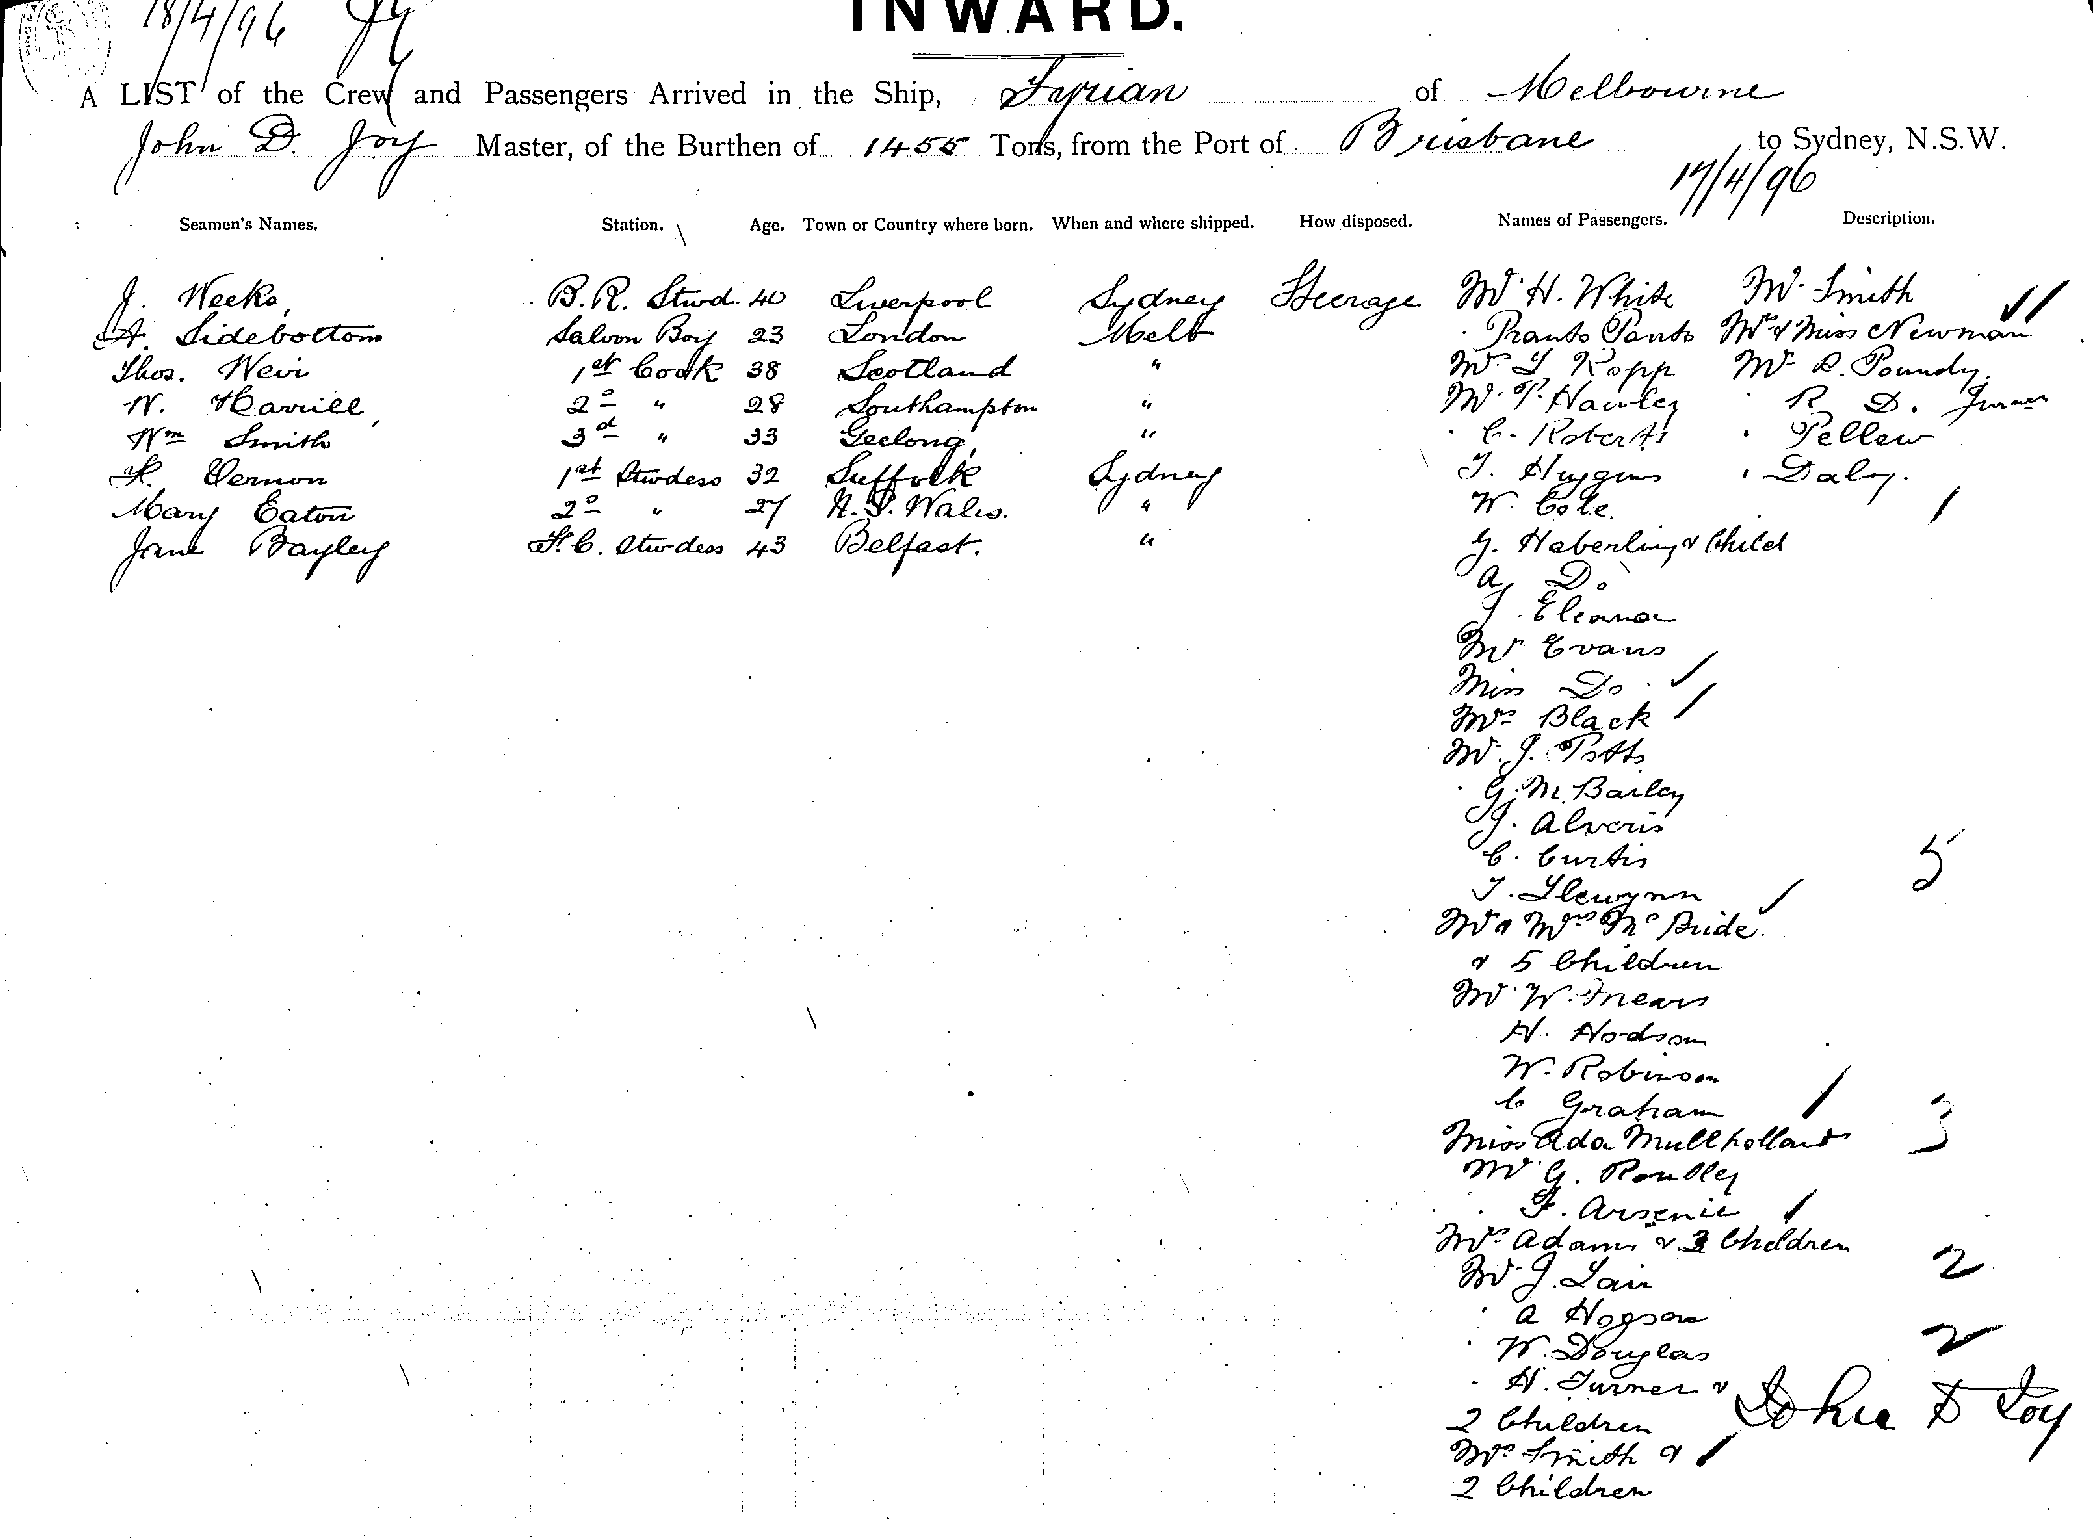 INWARD.
18/4/96
A LIST of the Crew and Passengers Arrived in the Ship, Tyrian of Melbourne
John D. Joy Master, of the Burthen of 1455 Tons, from the Port of Brisbane to Sydney, N.S.W.
17/4/96
Seamen's Names. Station. Age. Town or Country where born. When and where shipped. How disposed. Names of Passengers. Description.
J. Weeks, B.R. Stwd. 40 Liverpool Sydney Steerage Mr H. White Mr Smith
A. Sidebottom Saloon Boy 23 London Melb Mr & Miss Newman
Thos. Weir 1st Cook 38 Scotland " Mr Kopp Mr Poundy
W. Harrill, 2o " 28 Southampton " Mr Hawley R D. Turner
Wm Smith 3d " 33 Geelong, " C. Roberts Pellew
Vernon 1st Stwdess 32 Suffolk Sydney T. Huggins Daly.
Mary Eaton 2o " 27 N.S. Wales. " W. Cole
Jane Bayley F.C. Stwdess 43 Belfast. " G. Haberling & Child
A Do
J. Eleanor
Mr Evans
Miss Do
Mrs Black
Mr J. Potts
G. M. Bailey
J. Alveris
C. Curtis
T. Llewynn
Mr & Mrs McBride
& 5 Children 5
Mr W. Mears
H. Hodson
W. Robinson
C Graham
Miss Ada Mullholland 3
Mr G.
F. Arsenie
Mrs Adams & 3 Children
Mr J. Lair 2
A Hogson
W. Douglas 2
H. Turner &
2 Children John D Joy
Mrs Smith &
2 Children